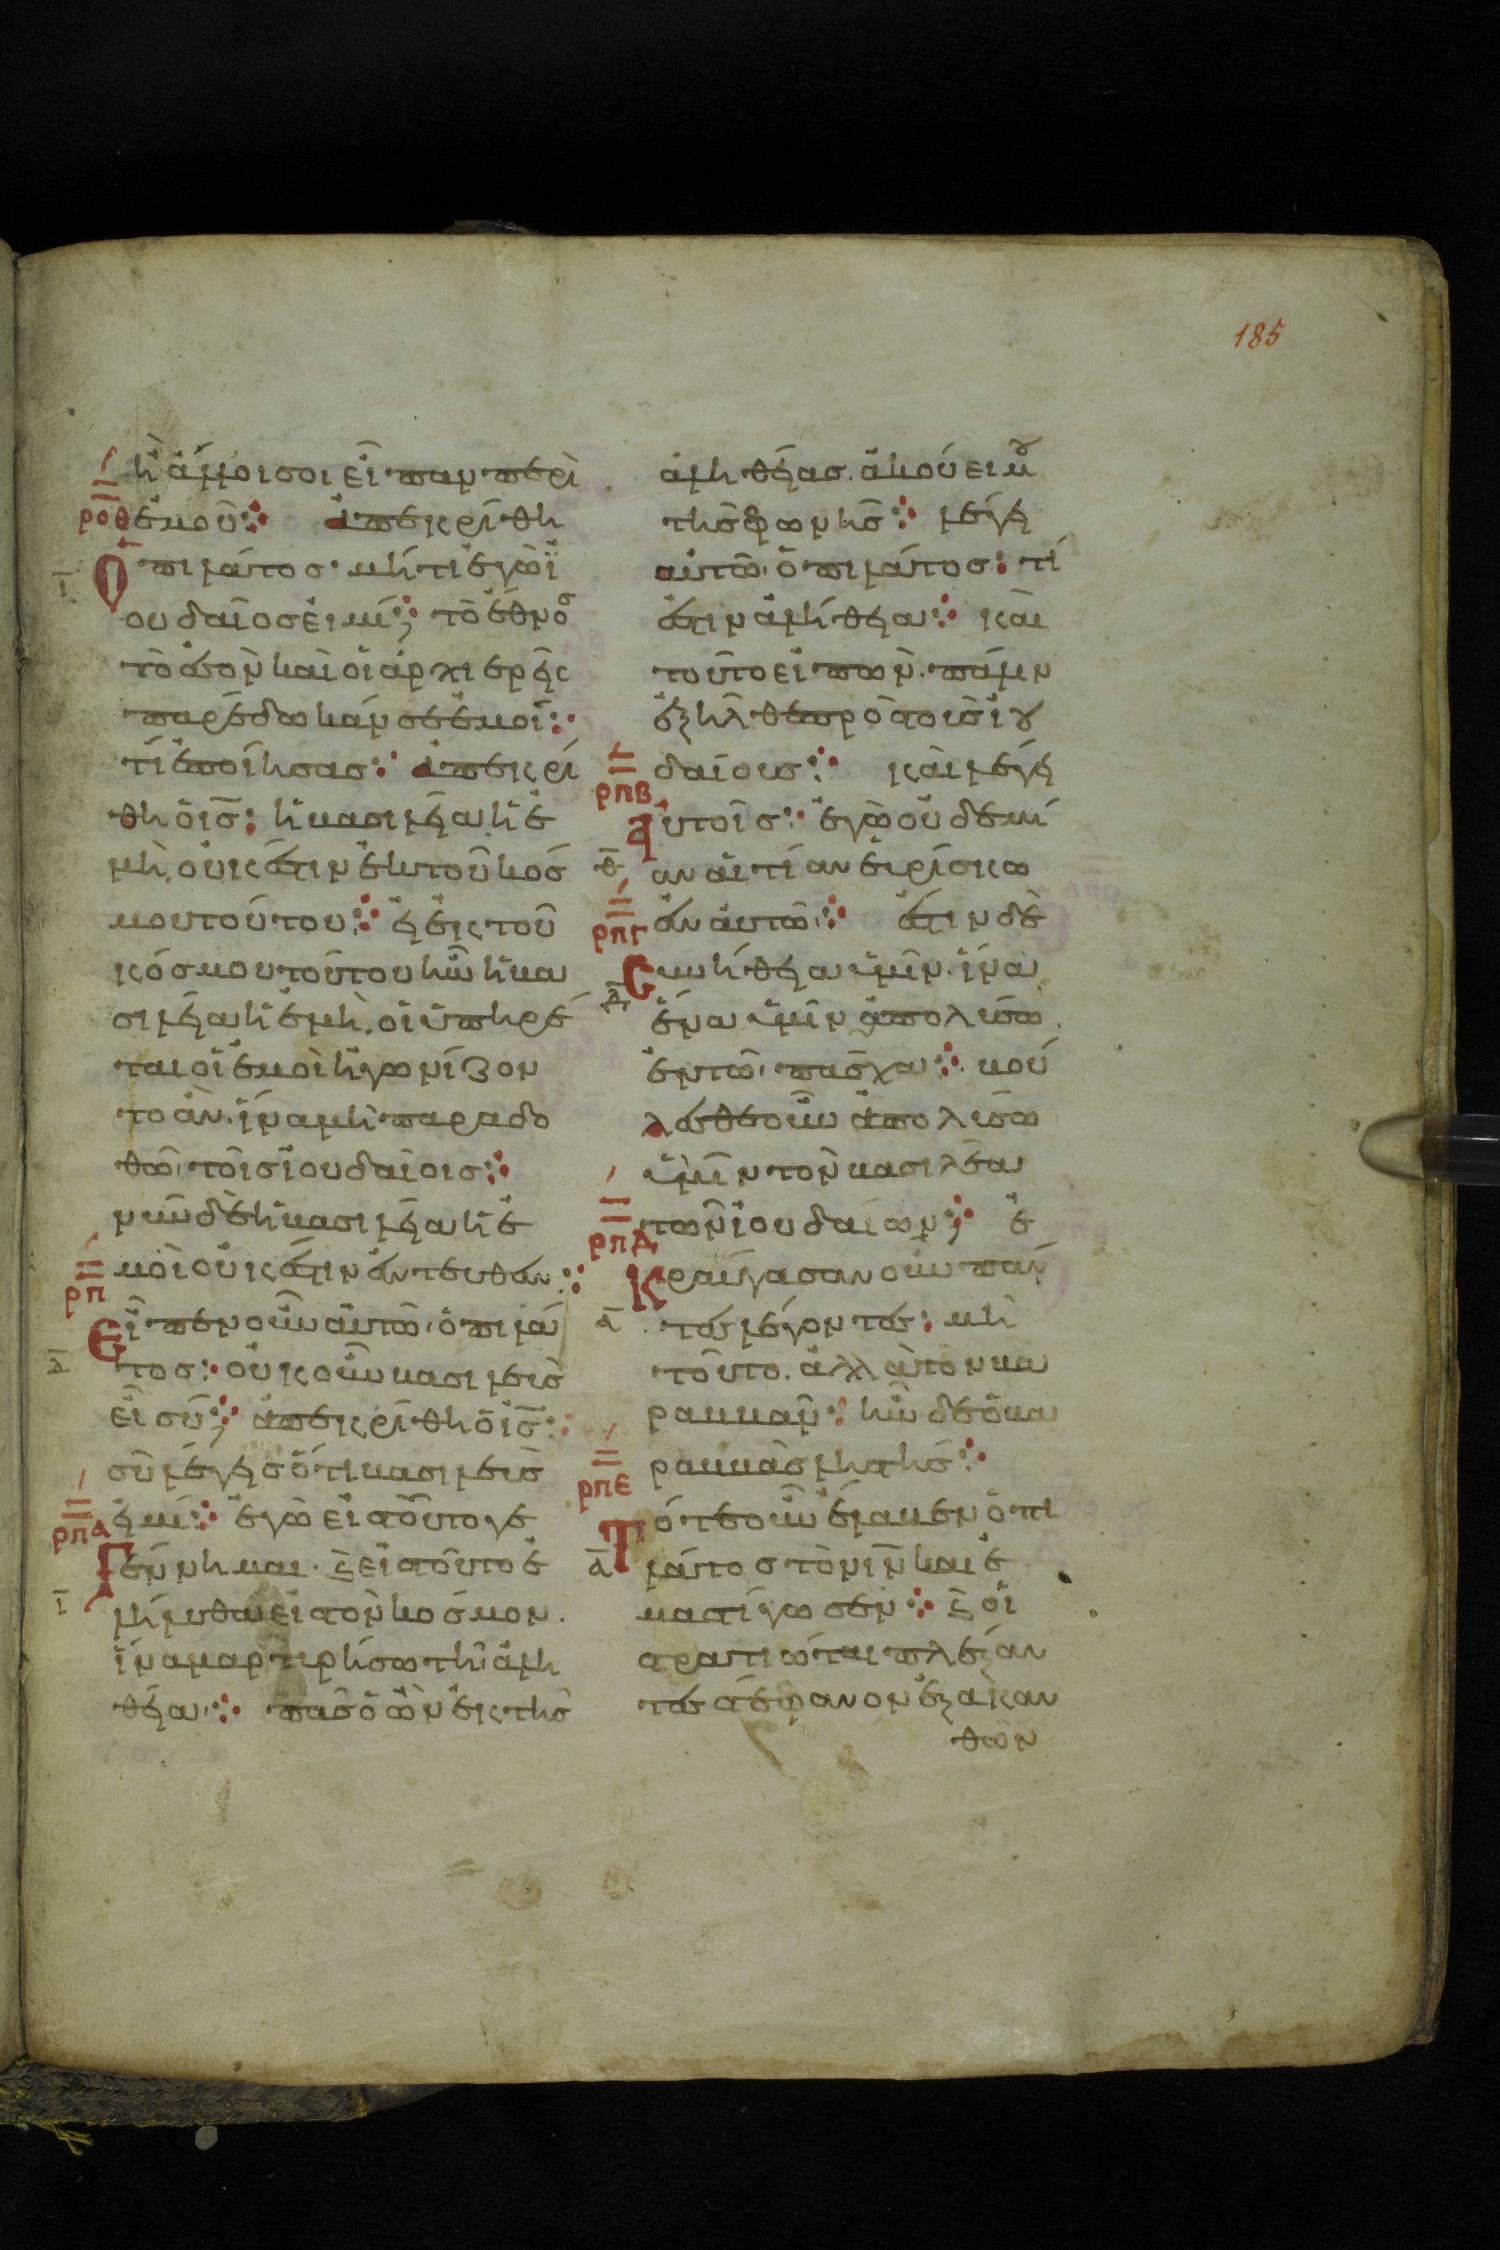 185
ἢ ἄλλοι σοι εἶπαν περὶ
ροθ ἐμοῦ ἀπεκρίθη
Ὁ πιλάτος· μήτι ἐγὼ ἰ
ι
ουδαῖός εἰμί; τὸ ἔθνος
τὸ σὸν καὶ οἱ ἀρχιερεῖς
παρέδωκάν σε ἐμοί:
τί ἐποίησας: ἀπεκρί
θη ὁ ις̅: ἡ βασιλεία ἡ ἐ
μὴ, οὐκ ἔστιν ἐκ τοῦ κόσ
μου τούτου: ἢ ἐκ τοῦ
κόσμου τούτου ἦν ἡ βα
σιλεία ἡ ἐμὴ, οἱ ὑπηρέ
ται οἱ ἐμοὶ ἠγωνίζον
το ἂν, ἵνα μὴ παραδο
θῶ τοῖς ἰουδαίοις:
νῦν δὲ ἡ βασιλεία ἡ ἐ
μοὶ οὐκ ἔστιν ἐντευθεν:
ρπ
Εἶπεν οὖν αὐτῶ ὁ πιλά
δ
τος: οὐκοῦν βασιλεὺς
εἶ σύ; ἀπεκρίθη ὁ ις̅:
σὺ λέγεις ὅτι βασιλεὺς
ρπα εἰμί: ἐγὼ εἰς τοῦτο γε
Γέννημαι. ϛ εἰς τοῦτο ἐ
ι
λήλυθα εἰς τὸν κόσμον.
ἵνα μαρτυρήσω τῆ ἀλη
θεία: πᾶς ὁ ὢν ἐκ τῆς
ἀληθείας. ἀκούει μου
τῆς φωνῆς: λέγει
αὐτῶ ὁ πιλάτος: τί
ἐστιν ἀλήθεια: καὶ
τοῦτο εἰπὼν. πάλιν
ἐξῆλθε πρὸς τοὺς ἰου
δαίους: καὶ λέγει
ρπβ
Αὐτοῖς: ἐγὼ οὐδεμί
θ
αν αἰτίαν εὑρίσκω
ἐν αὐτῶ: ἔστιν δὲ
ρπγ
Συνήθεια ὑμῖν. ἵνα
δ
ἕνα ὑμῖν ἀπολύσω
ἐν τῶ πάσχα: βού
λεσθε οὖν ἀπολύσω
ὑμῖν τὸν βασιλέα
τῶν ἰουδαίων; ἐ
ρπδ
Κραύγασαν οὖν πάν
α
τες λέγοντες: μὴ
τοῦτον. ἀλλὰ τὸν βα
ραββᾶν: ἦν δὲ ὁ βα
ραββᾶς ληστής:
ρπε
Τότε οὖν ἔλαβεν ὁ πι
α
λάτος τὸν ιν̅ καὶ ἐ
μαστίγωσεν: ϛ οἱ
στρατιῶται πλέξαν
τες στέφανον ἐξ ἀκαν
θῶν